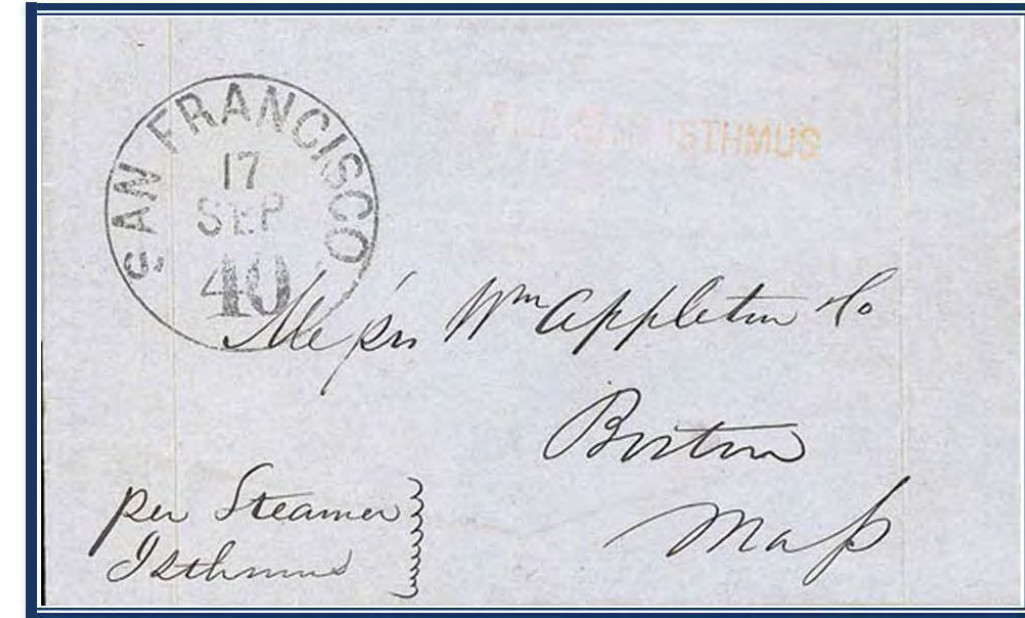 SAN FRANCISCO
17
SEP
40
ISTHMUS
Messrs Wm Appleton Co
Boston
Mass
per Steamer
Isthmus